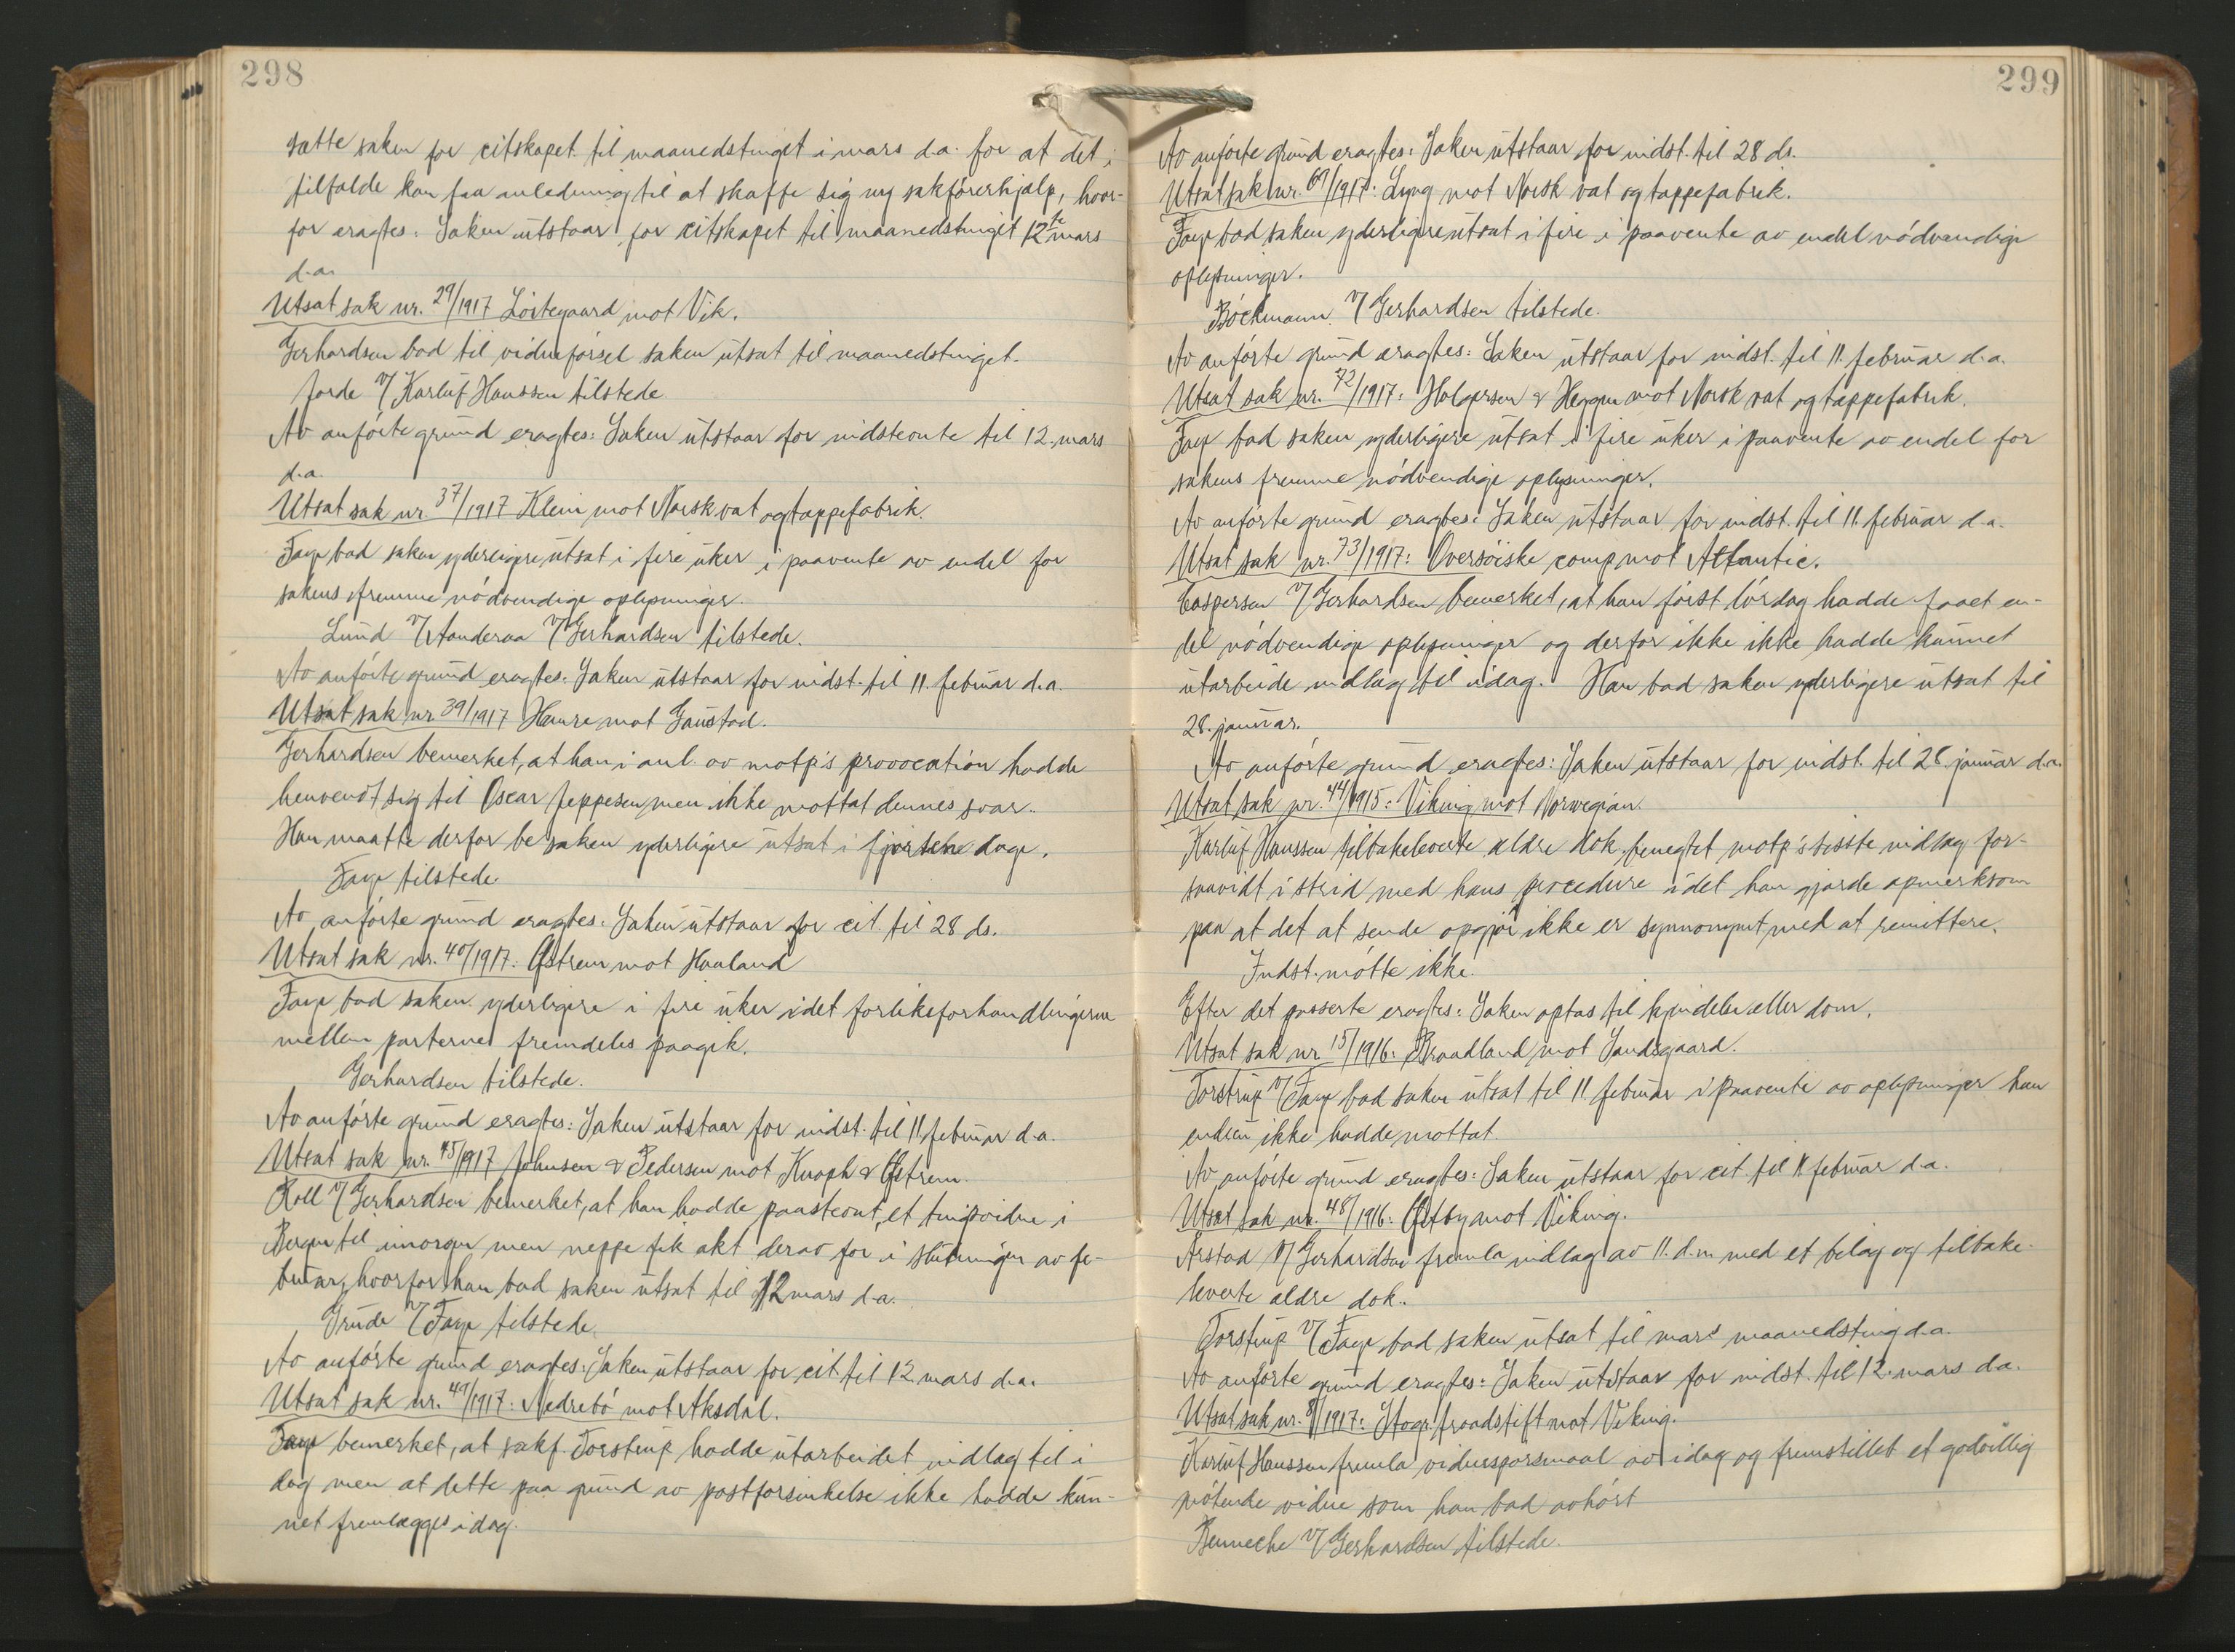 298
sætte saken for citskapet til maanedstinget i mars d.a. for at det i
tilfælde kan faa anledning til at skaffe sig ny sakførerhjælp, hvor-
for eragtes: Saken utstaar for citskapet til maanedstinget 12te mars
d.a.
Utsat sak nr. 29/1917 Lörtegaard mot Vik.
Gerhardsen bad til vidneførsel saken utsat til maanedstinget.
Jorde v/ Karluf Hanssen tilstede.
Av anførte grund eragtes: Saken utstaar for indstevnte til 12. mars
d.a.
Utsat sak nr. 37/1917 Klein mot Norsk vat og tappefabrik.
Faye bad saken yderligere utsat i fire uker i paavente av endel for
sakens fremme nødvendige oplysninger.
Lund v/ Aanderaa v/ Gerhardsen tilstede.
Av anførte grund eragtes: Saken utstaar for indst. til 11. februar d.a.
Utsat sak nr. 39/1917 Haure mot Gaustad.
Gerhardsen bemerket, at han i anl. av motp's provocation hadde
henvendt sig til Oscar Jeppesen, men ikke mottat dennes svar.
Han maatte derfor be saken yderligere utsat i fjorten dage.
Faye tilstede.
Av anførte grund eragtes: Saken utstaar for cit. til 28 ds.
Utsat sak nr. 40/1917: Østrem mot Haaland
Faye bad saken yderligere i fire uker idet forliksforhandlingerne
mellem parterne fremdeles paagik.
Gerhardsen tilstede.
Av anførte grund eragtes: Saken utstaar for indst. til 11. februar d.a.
Utsat sak nr. 45/1917 Johnsen & Pedersen mot Knoph & Østrem.
Roll v/ Gerhardsen bemerket, at han hadde paastevnt et tingsvidne i
Bergen til imorgen men neppe fik akt derav før i slutningen av fe-
bruar, hvorfor han bad saken utsat til 12 mars d.a.
Grude v/ Faye tilstede.
Av anførte grund eragtes: Saken utstaar for cit til 12. mars d.a.
Utsat sak nr. 49/1917: Nedrebö mot Aksdal.
Faye bemerket, at sakf. Torstrup hadde utarbeidet indlæg til i
dag men at dette paa grund av postforsinkelse ikke hadde kun-
net fremlægges idag.
299
Av anførte grund eragtes: Saken utstaar for indst. til 28 ds.
Utsat sak nr. 69/1917: Lyng mot Norsk vat og tappefabrik.
Faye bad saken yderligere utsat i fire i paavente av endel nødvendige
oplysninger.
Böckmann v/ Gerhardsen tilstede.
Av anførte grund eragtes: Saken utstaar for indst. til 11. februar d.a.
Utsat sak nr. 72/1917: Holgersen & Heggen mot Norsk vat og tappefabrik.
Faye bad saken yderligere utsat i fire uker i paavente av endel for
sakens fremme nødvendige oplysninger.
Av anførte grund eragtes: Saken utstaar for indst. til 11. februar d.a.
Utsat sak nr. 73/1917: Oversøiske comp. mot Atlantic.
Caspersen v/ Gerhardsen bemerket, at han først lørdag hadde faaet en-
del nødvendige oplysninger og derfor ikke ikke hadde kunnet
utarbeide indlæg til idag. Han bad saken yderligere utsat til
28. januar.
Av anførte grund eragtes: Saken utstaar for indst. til 28. januar d.a.
Utsat sak nr. 44/1915: Viking mot Norwegian.
Karluf Hanssen tilbakeleverte ældre dok, benegtet motp's sisste indlæg for-
saavidt i strid med hans procedure idet han gjorde opmerksom
paa at det at sende opgjør ikke er synnonymt med at remittere.
Indst. møtte ikke.
Efter det passerte eragtes: Saken optas til kjendelse eller dom.
Utsat sak nr. 15/1916: Braadland mot Sandsgaard.
Torstrup v/ Faye bad saken utsat til 11 februar i paavente av oplysninger han
endnu ikke hadde mottat.
Av anførte grund eragtes: Saken utstaar for cit. til 11 februar d.a.
Utsat sak nr. 48/1916: Østby mot Viking.
Arstad v/ Gerhardsen fremla indlæg av 11. d.m. med et bilag og tilbake-
leverte ældre dok.
Torstrup v/ Faye bad saken utsat til mars maanedsting d.a.
Av anførte grund eragtes: Saken utstaar for indst. til 12. mars d.a.
Utsat sak nr. 8/1917: mot Viking.
Karluf Hanssen fremla vidnespørsmaal av idag og fremstillet et godvillig
møtende vidne som han bad avhørt
Benneche v/ Gerhardsen tilstede.